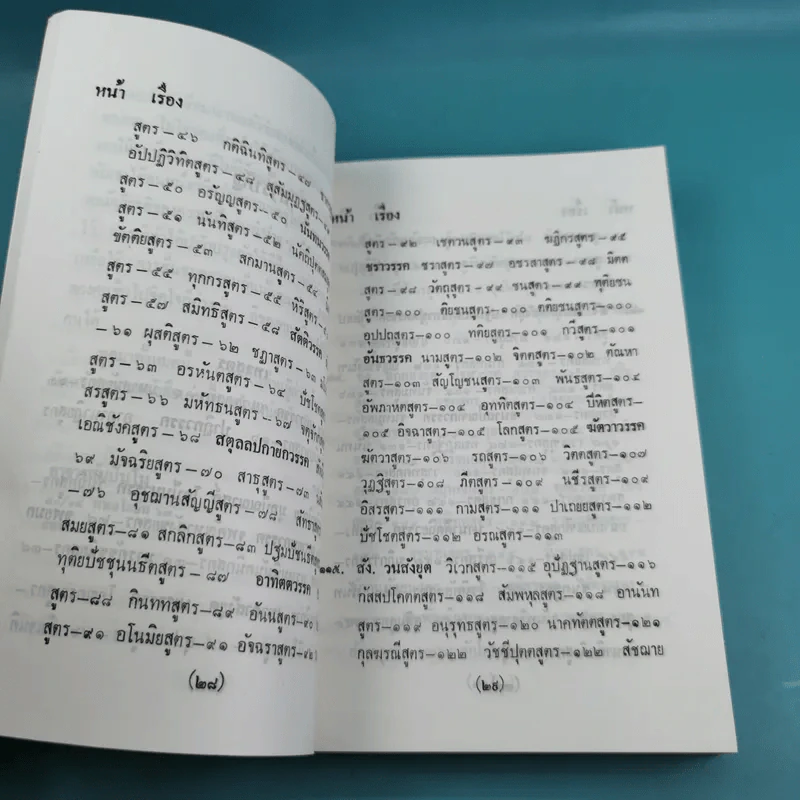 หน้า เรื่อง
สูตร–๔๖ กติฉินทิสูตร–๔๗
อัปปฏิวิทิตสูตร–๔๘ สุสัมมุฏฐสูตร–
สูตร–๕๐ อรัญญสูตร–๕๐
สูตร–๕๑ นันทิสูตร–๕๒
ขัตติยสูตร–๕๓ สกมานสูตร–๕๔
สูตร–๕๕ ทุกกรสูตร–๕๕ หิริสูตร–
สูตร–๕๗ สมิทธิสูตร–๕๘ สัตติวรรค
–๖๑ ผุสติสูตร–๖๒ ชฏาสูตร–๖๓
สูตร–๖๓ อรหันตสูตร–๖๔
สรสูตร–๖๖ มหัทธนสูตร–๖๗
เอณิชังคสูตร–๖๘ สตุลลปกายิกวรรค
๖๙ มัจฉริยสูตร–๗๐ สาธุสูตร–๗๓
–๗๖ อุชฌานสัญญีสูตร–๗๘
สมยสูตร–๘๑ สกลิกสูตร–๘๓
ทุติยปัชชุนนธีตสูตร–๘๗ อาทิตตวรรค
สูตร–๘๘ กินททสูตร–๘๙ อันนสูตร–๙๐
สูตร–๙๑ อโนมิยสูตร–๙๑ อัจฉราสูตร–๙๒
(๒๘)
หน้า เรื่อง
สูตร–๙๒ เชตวนสูตร–๙๓ ฆฏิกรสูตร–๙๕
ชราวรรค ชราสูตร–๙๗ อชรสาสูตร–๙๘ มิตต
สูตร–๙๘ วัตถุสูตร–๙๙ ชนสูตร–๙๙ ทุติยชน
สูตร–๑๐๐ ตติยชนสูตร–๑๐๐
อุปปถสูตร–๑๐๐ ทุติยสูตร–๑๐๑ กวีสูตร–๑๐๑
อันธวรรค นามสูตร–๑๐๒ จิตตสูตร–๑๐๒ ตัณหา
สูตร–๑๐๓ สัญโญชนสูตร–๑๐๓ พันธสูตร–๑๐๔
อัพภาหตสูตร–๑๐๔ อุททิตสูตร–๑๐๔ ปิหิตสูตร–
๑๐๕ อิจฉาสูตร–๑๐๕ โลกสูตร–๑๐๕ ฆัตวาวรรค
ฆัตวาสูตร–๑๐๖ รถสูตร–๑๐๖ วิตตสูตร–๑๐๗
วุฏฐิสูตร–๑๐๘ ภีตสูตร–๑๐๙ นชีรสูตร–๑๐๙
อิสรสูตร–๑๑๑ กามสูตร–๑๑๑ ปาเถยยสูตร–๑๑๒
ปัชโชตสูตร–๑๑๒ อรณสูตร–๑๑๓
๑๑๕. สํ. วนสังยุต วิเวกสูตร–๑๑๕ อุปัฏฐานสูตร–๑๑๖
กัสสปโคตตสูตร–๑๑๘ สัมพหุลสูตร–๑๑๘ อานันท
สูตร–๑๑๙ อนุรุทธสูตร–๑๒๐ นาคทัตตสูตร–๑๒๑
กุลฆรณีสูตร–๑๒๒ วัชชีปุตตสูตร–๑๒๒ สัชฌาย
(๒๙)